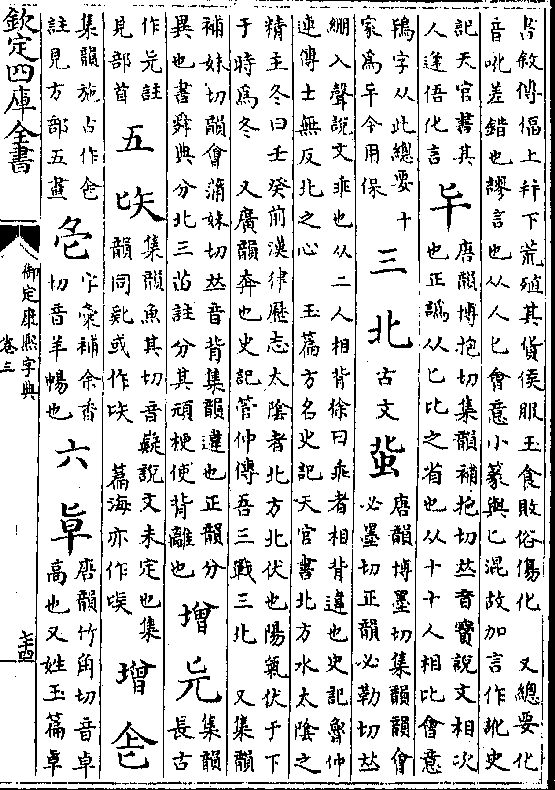 書敘傳偪上幷下荒殖其貨侯服玉食敗俗傷化 又總要化
音吪差錯也謬言也从人匕會意小篆與匕混故加言作訛史
記天官書其
人逢俉化言
𠤏
唐韻博抱切集韻補抱切𠀤音寶說文相次
也正譌从匕比之省也从十十人相比會意
鴇字从此總要十
家爲𠤏今用保
三
北
古文
唐韻博墨切集韻韻會
必墨切正韻必勒切𠀤
綳入聲說文乖也从二人相背徐曰乖者相背違也史記魯仲
連傳士無反北之心 玉篇方名史記天官書北方水太陰之
精主冬曰壬癸前漢律歷志太陰者北方北伏也陽氣伏于下
于時爲冬 又廣韻奔也史記管仲傳吾三戰三北 又集韻
補妹切韻會蒲妹切𠀤音背集韻違也正韻分
異也書舜典分北三苗註分其頑梗使背離也
增
集韻
長古
作 註
見部首
五
𠤗
集韻魚其切音疑說文未定也集
韻同 或作𠤗
篇海亦作
增
㐌
集韻施古作㐌
註見方部五畫
字彙補余香
切音羊暢也
六
唐韻竹角切音卓
高也又姓玉篇卓
欽定四庫全書
御定康熙字典
卷三